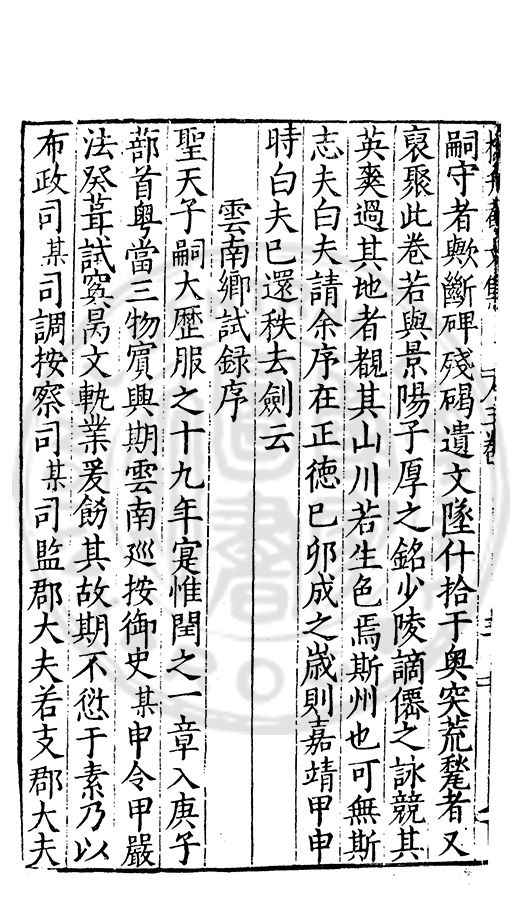 嗣守者歟斷碑殘碣遺文墜什拾于奥突荒蹵者又
裒聚此卷若與景陽子厚之銘少陵謫僊之詠競其
英爽過其地者覩其山川若生色焉斯州也可無斯
志夫白夫請余序在正德已卯成之歲則嘉靖甲申
時白夫已還秩去劍云
雲南鄉試録序
聖天子嗣大歷服之十九年寔惟閏之一章入庚子
蔀首粤當三物賓興期雲南巡按御史某申令甲嚴
法癸葺試窴昺文軌業爰飭其故期不愆于素乃以
布政司某司調按察司某司監郡大夫若支郡大夫